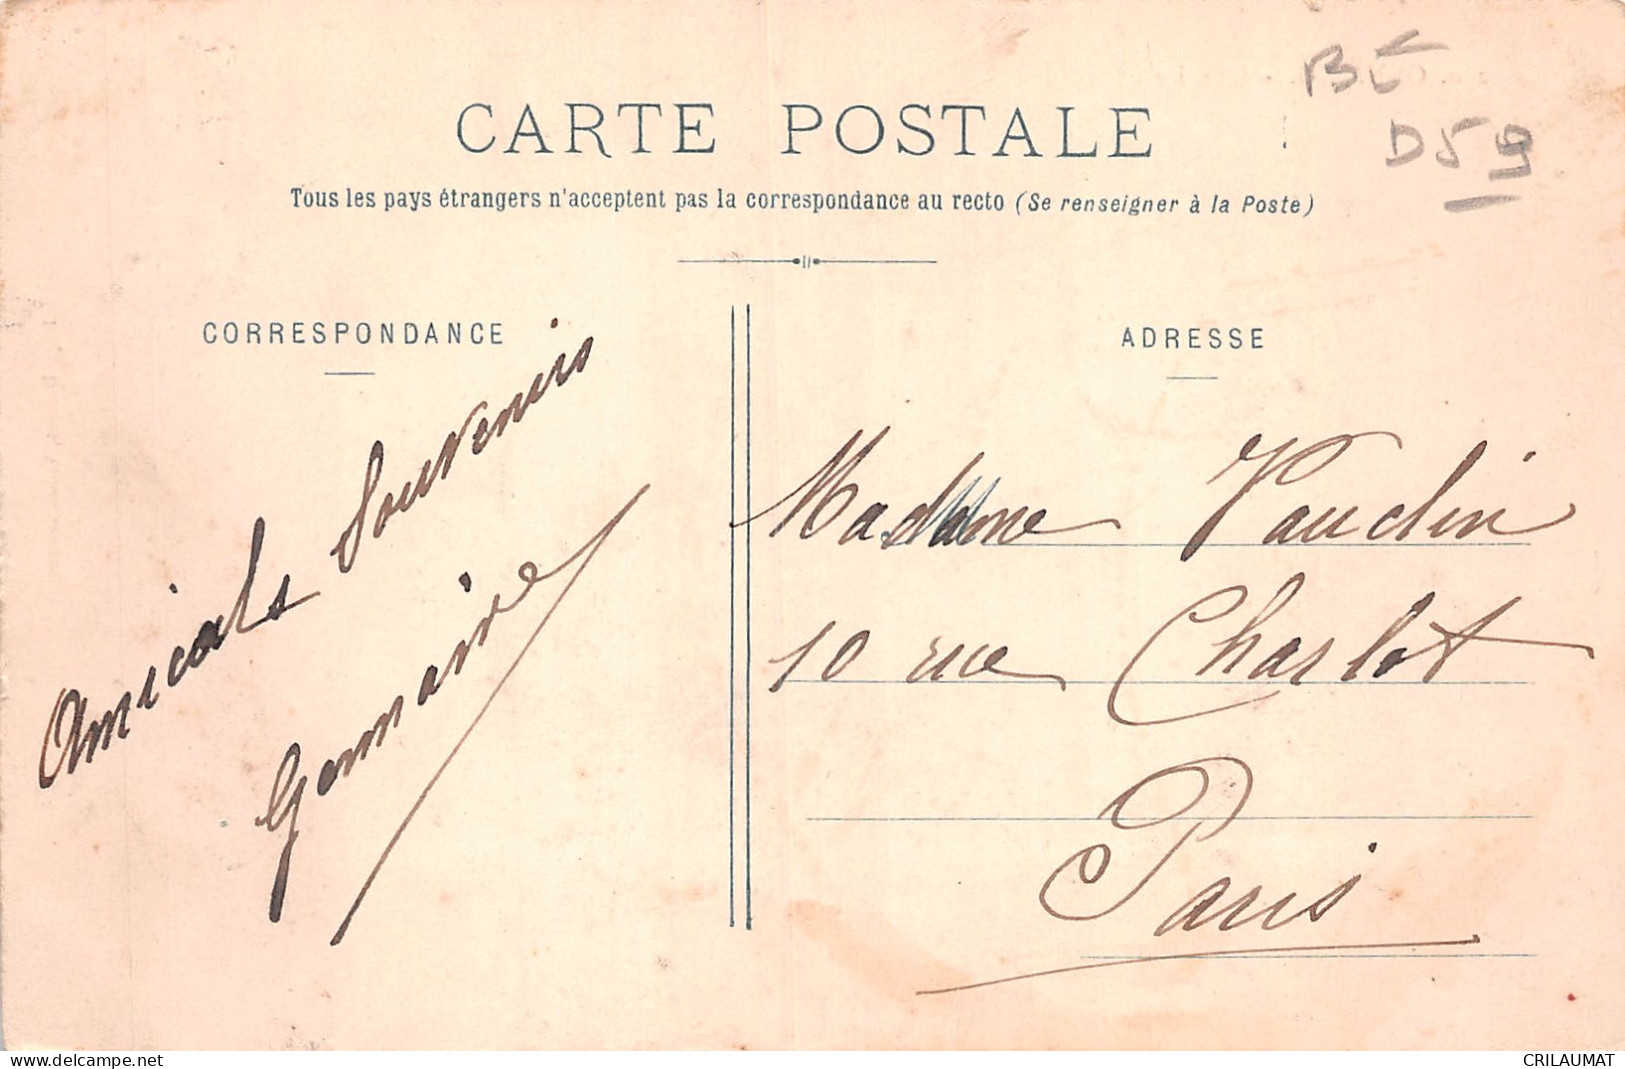 BE
D59
CARTE POSTALE
Tous les pays étrangers n'acceptent pas la correspondance au recto (Se renseigner à la Poste)
CORRESPONDANCE
Amicals Souvenirs
Germaine
ADRESSE
Madame Vauclin
10 rue Charlot
Paris
www.delcampe.net
CRILAUMAT